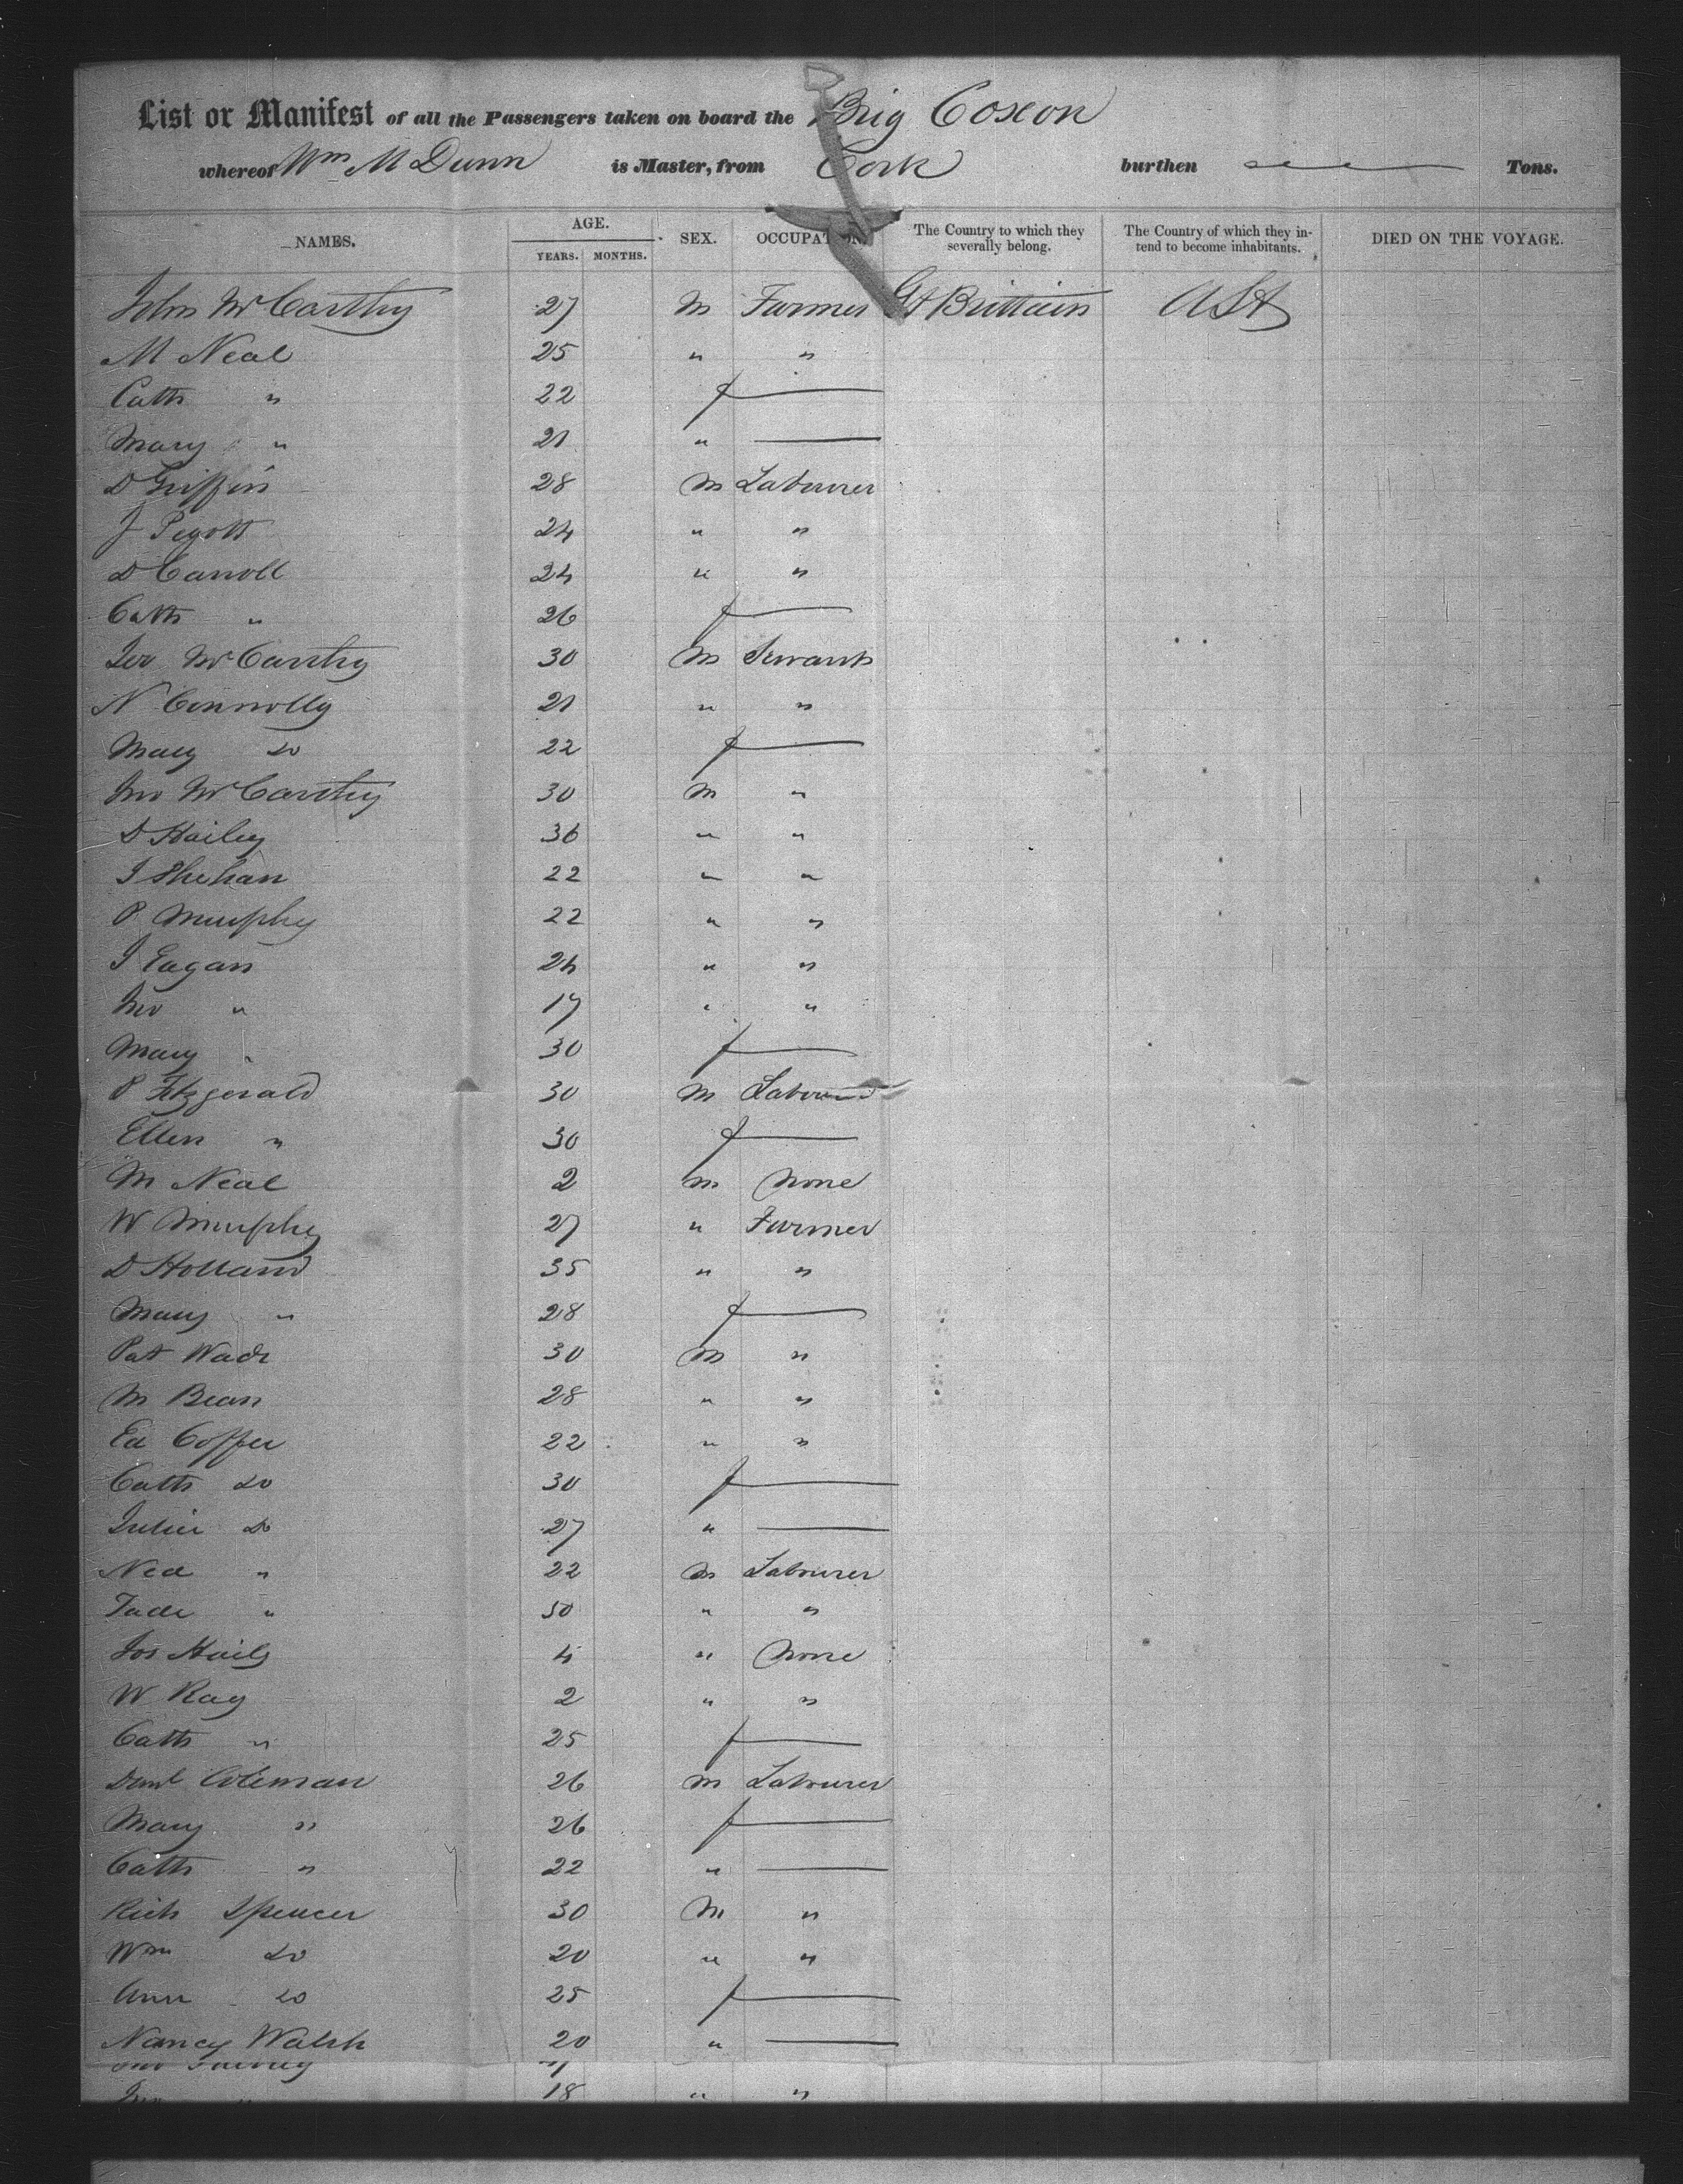 List or Manifest of all the Passengers taken on board the Brig Coxon
whereof Wm M Dunn is Master, from Cork burthen Tons.
NAMES. AGE. YEARS. MONTHS. SEX. OCCUPATION. The Country to which they severally belong. The Country of which they intend to become inhabitants. DIED ON THE VOYAGE.
John McCarthy 27 M Farmer Gt Brittain USA
M Neal 25 " "
Cath " 22 f
Mary " 21 "
D Griffin 28 M Labourer
J Pigott 24 " "
D Carroll 24 " "
Cath " 26 f
Jer McCarthy 30 M Servant
N Connolly 21 " "
Mary do 22 f
Jno McCarthy 30 M "
D Hailey 36 " "
J Shehan 22 " "
P Murphy 22 " "
J Eagan 24 " "
Jno " 17 " "
Mary " 30 f
P Fitzgerald 30 M Labourer
Ellen " 30 f
M Neal 2 M None
W Murphy 27 " Farmer
D Holland 35 " "
Mary " 28 f
Pat Wade 30 M "
M Bean 28 " "
Ed Coffee 22 " "
Cath do 30 f
Julia do 27 "
Ned " 22 M Labourer
Tade " 50 " "
Jos Haily 4 " None
W Ray 2 " "
Cath " 25 f
Danl Coleman 26 M Labourer
Mary " 26 f
Cath " 22 "
Rich Spencer 30 M "
Wm do 20 " "
Ann do 25 f
Nancy Walsh 20 "
18 " "